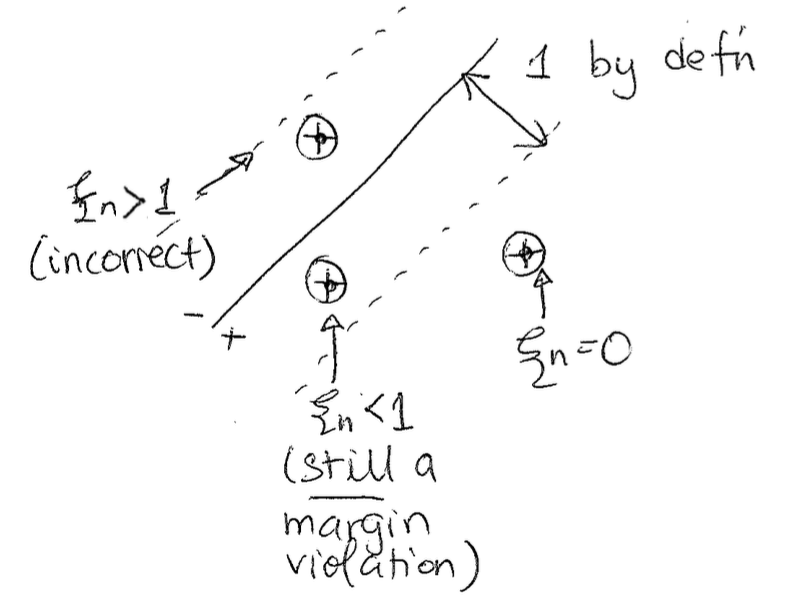 1 by defn
ξn>1
(incorrect)
- +
ξn=0
ξn<1
(still a
margin
violation)